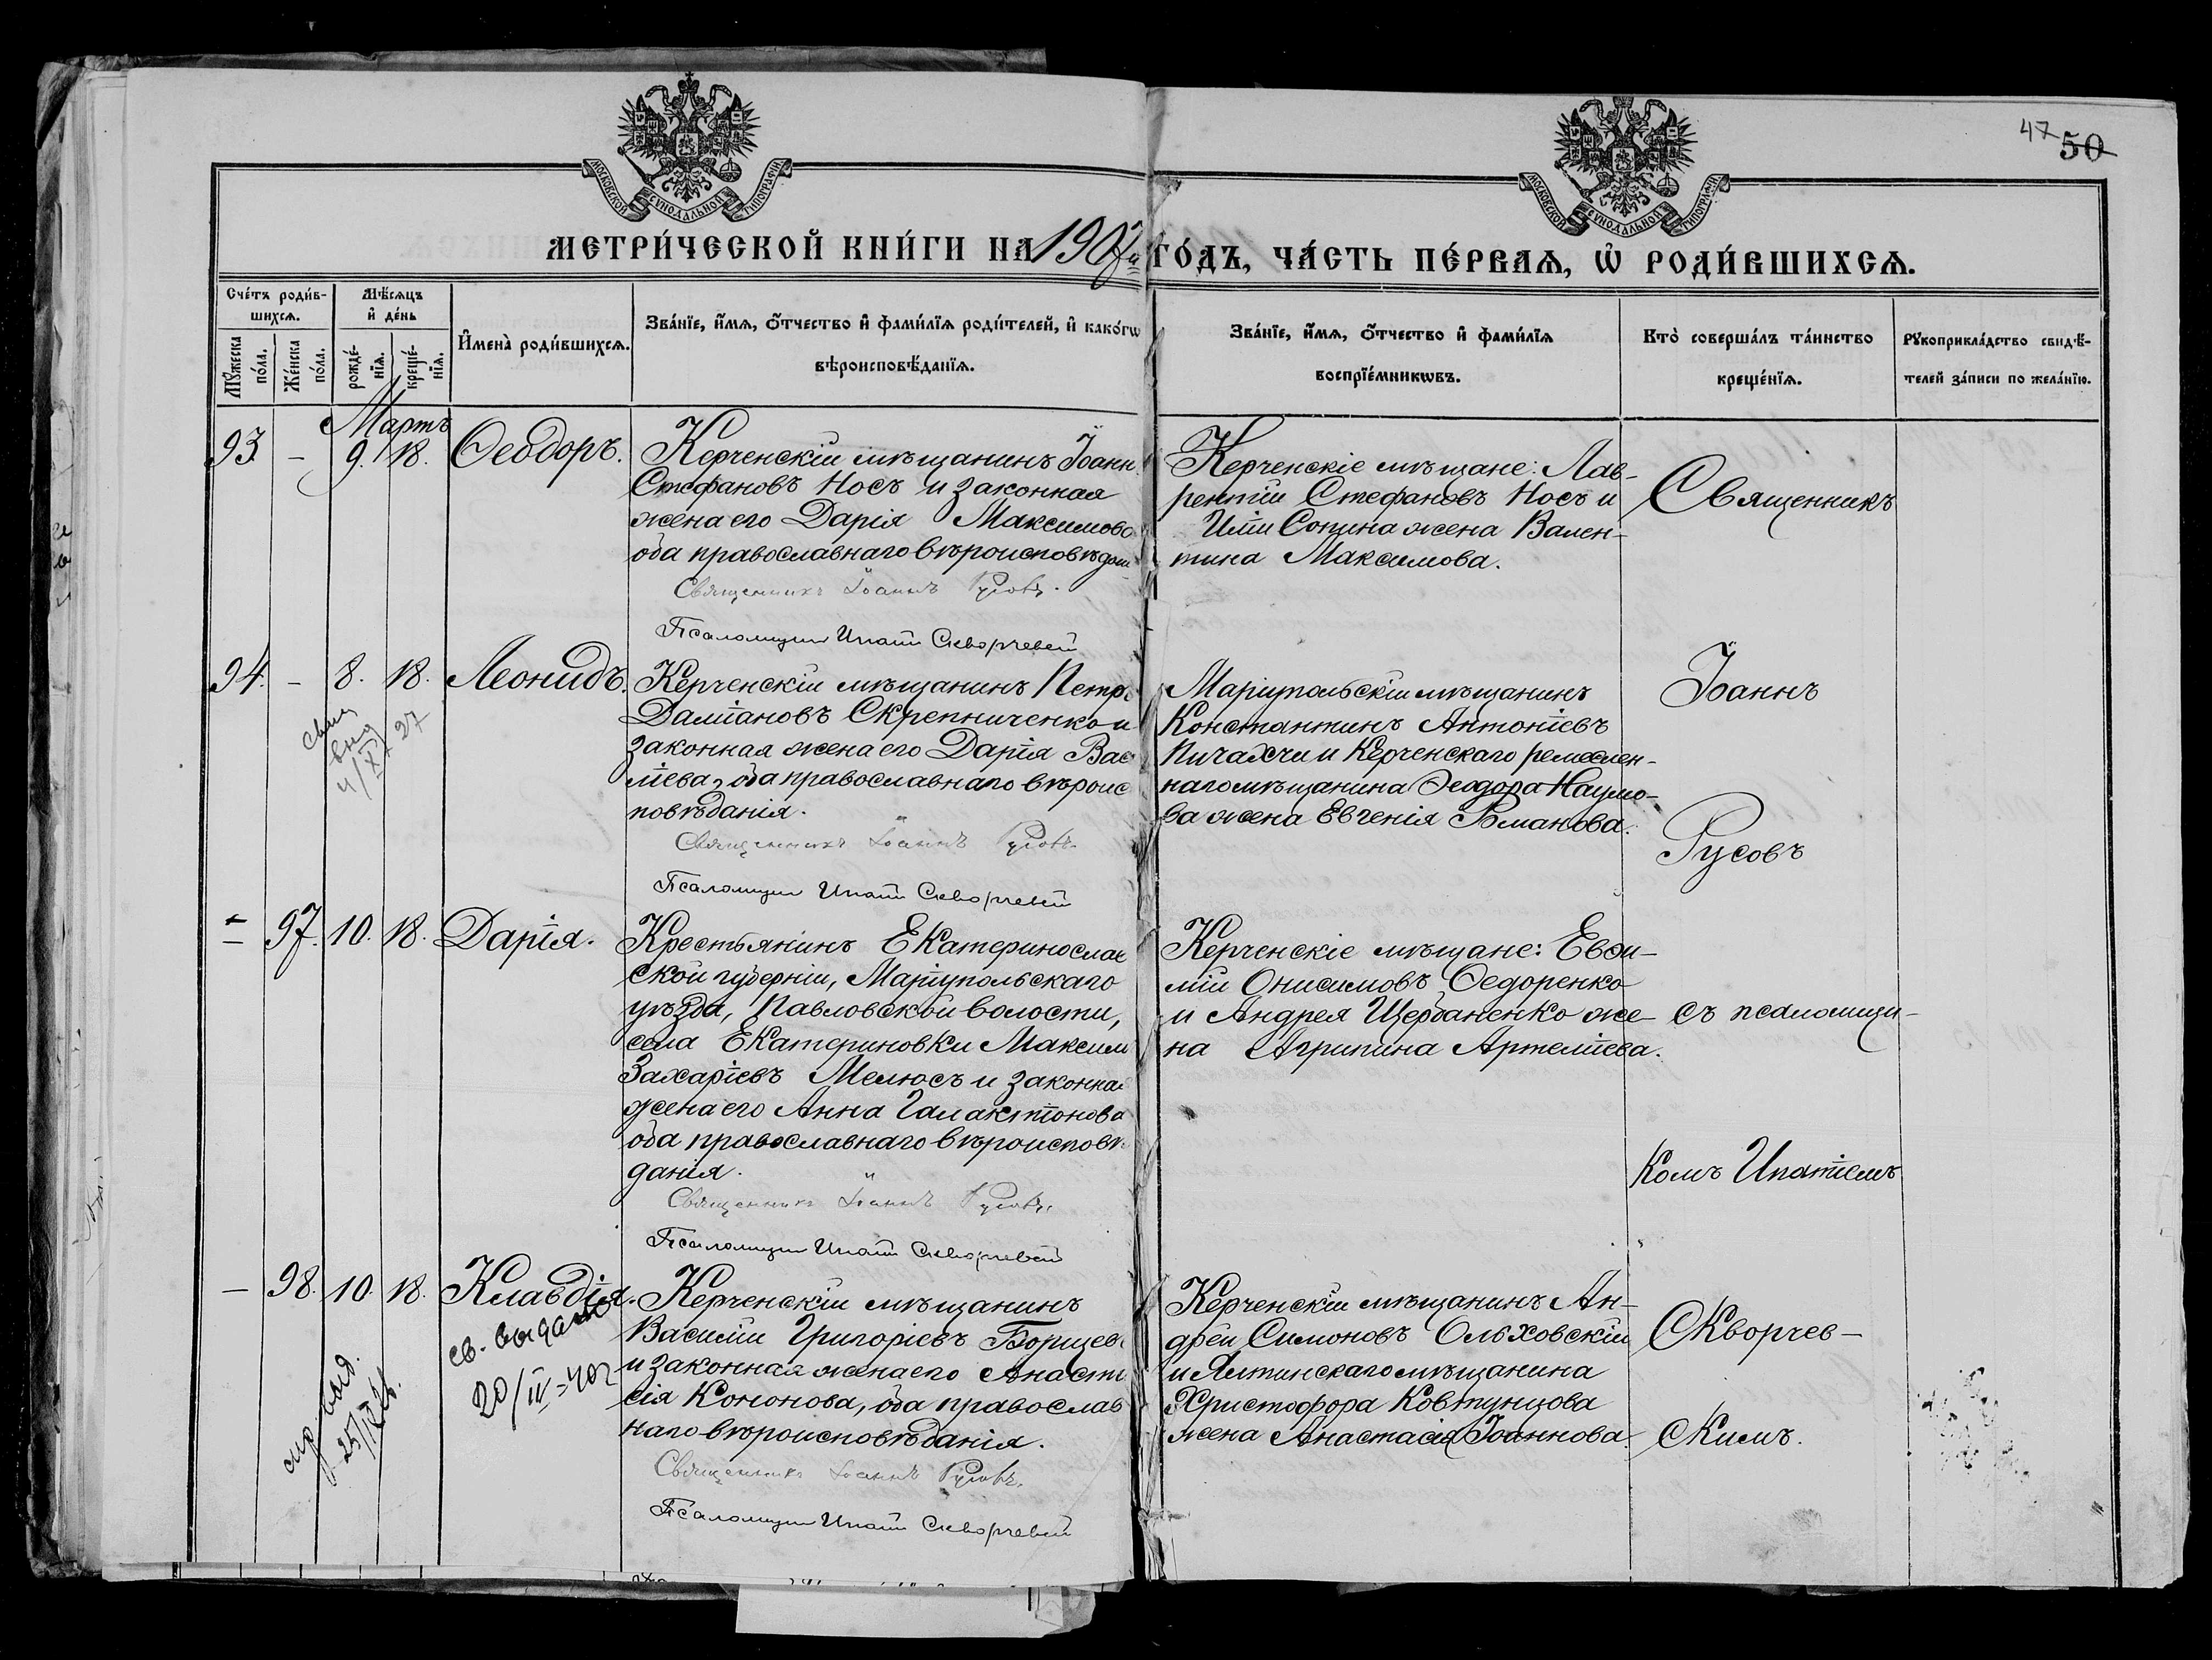 47 50
МОСКОВСКОЙ СѴНОДАЛЬНОЙ ТИПОГРАФІИ
МОСКОВСКОЙ СѴНОДАЛЬНОЙ ТИПОГРАФІИ
МЕТРИ́ЧЕСКОЙ КНИ́ГИ НА 1907й ГО́ДЪ, ЧА́СТЬ ПЕ́РВАѦ, Ѡ҆ РОДИ́ВШИХСѦ.
Сче́тъ роди́в-
шихсѧ.
Мꙋ́жеска по́ла.
Же́нска по́ла.
Мѣ́сѧцъ
и҆ де́нь
рожде́-нїѧ.
креще́-нїѧ.
И҆мена̀ роди́вшихсѧ.
Зва́нїе, и҆́мѧ, ѻ҆́тчество и҆ фами́лїѧ роди́телей, и҆ како́гѡ
вѣроисповѣ́данїѧ.
Зва́нїе, и҆́мѧ, ѻ҆́тчество и҆ фами́лїѧ
воспрїе́мникѡвъ.
Кто̀ соверша́лъ та́инство
креще́нїѧ.
Рꙋкоприкла́дство свидѣ́-
телей за́писи по жела́нїю.
Мартъ
93. – 9. 18. Ѳеодоръ.
Керченскій мѣщанинъ Іоанн
Стефановъ Носъ и законная
жена его Дарія Максимова
оба православнаго вѣроисповѣдан
Священникъ Іоаннъ Русовъ.
Псаломщик Ипатій Скворчевскій
Керченскіе мѣщане: Лав-
рентій Стефановъ Носъ и
Сопина жена Вален-
тина Максимова.
Священникъ
94. – 8. 18. Леонидъ.
Керченскій мѣщанинъ Петръ
Даміановъ Скрепниченко и
законная жена его Дарія Васи
ліева, оба православнаго вѣроис
повѣданія.
Священникъ Іоаннъ Русовъ.
Псаломщик Ипатій Скворчевскій
Маріупольскій мѣщанинъ
Константинъ Антоніевъ
Пичахчи и Керченскаго ремеслен-
наго мѣщанина Ѳеодора Наумо-
ва жена Евгенія Романова.
Іоаннъ
Русовъ
– 97. 10. 18. Дарія.
Крестьянинъ Екатеринослав
ской губерніи, Маріупольскаго
уѣзда, Павловской волости,
села Екатериновки Максим
Захаріевъ Мелюсъ и законная
жена его Анна Галактіонова
оба православнаго вѣроисповѣ
данія.
Священникъ Іоаннъ Русовъ.
Псаломщик Ипатій Скворчевскій
Керченскіе мѣщане: Евѳи-
мій Онисимовъ Ѳедоренко
и Андрея Щербаненко же-
на Агрипина Артеміева.
съ псаломщи-
комъ Ипатіемъ
– 98. 10. 18. Клавдія.
св. выдано
20/IV-40г
Керченскій мѣщанинъ
Василій Григоріевъ Борщев
и законная жена его Анаста
сія Кононова, оба православ
наго вѣроисповѣданія.
Священникъ Іоаннъ Русовъ.
Псаломщик Ипатій Скворчевскій
Керченскій мѣщанинъ Ан-
дрей Симоновъ Ольховскій
и Ялтинскаго мѣщанина
Христофора Ковтунцова
жена Анастасія Іоаннова.
Скворчев-
скимъ.